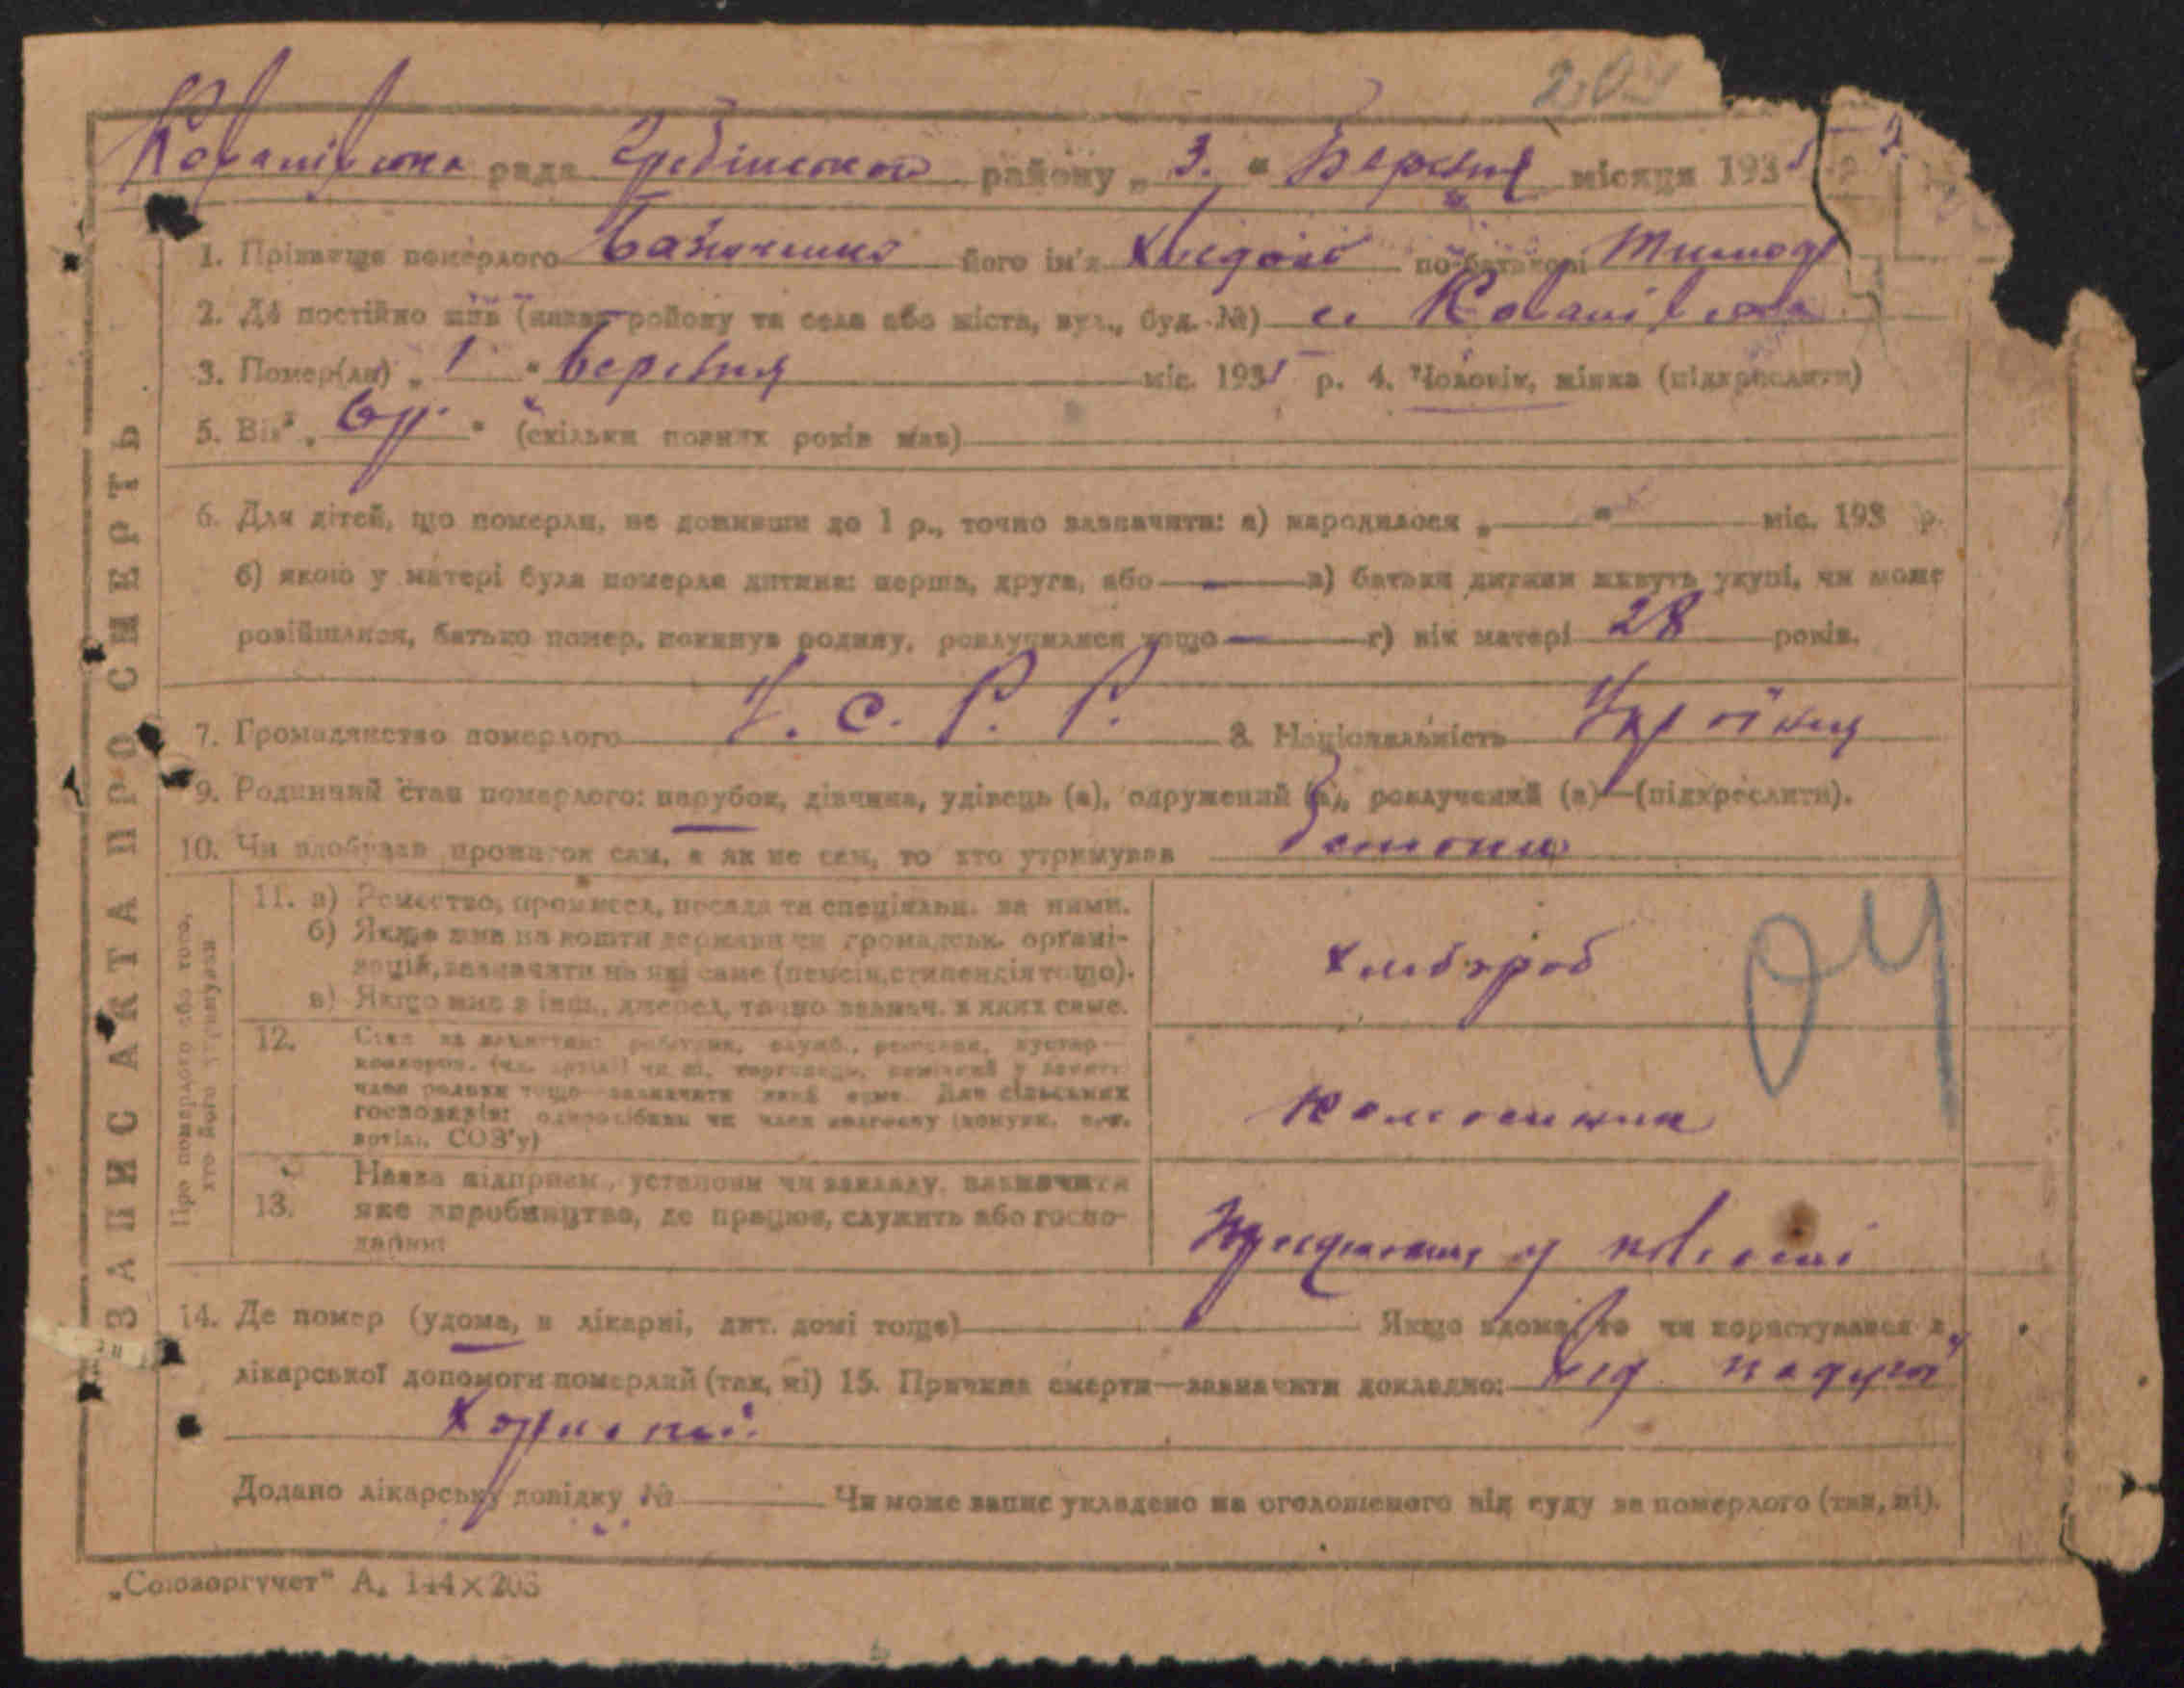 204
Ковалівська рада Гребінського району „ 3. " Березня місяця 193
1. Прізвище померлого його ім'я Хведор по-батькові Тимоф
2. Де постійно жив (назва району та села або міста, вул., буд. №) с. Ковалівка
3. Помер(ла) „ 1 " березня міс. 193 р. 4. Чоловік, жінка (підкреслити)
5. Вік „ 6 р. " (скільки повних років мав)
6. Для дітей, що померли, не доживши до 1 р., точно зазначити: а) народилося „ " міс. 193 р.
б) якою у матері була померла дитина: перша, друга, або — в) батьки дитини живуть укупі, чи може
розійшлися, батько помер, покинув родину, розлучилися тощо — г) вік матері 28 років.
7. Громадянство померлого У. С. Р. Р. 8. Національність
9. Родинний стан померлого: парубок, дівчина, удівець (а), одружений (а), розлучений (а)—(підкреслити).
10. Чи здобував прожиток сам, а як не сам, то хто утримував батьки
ЗАПИС АКТА ПРО СМЕРТЬ
Про померлого або того, хто його утримував
11. а) Ремество, промисел, посада та спеціяльн. за ними.
б) Якщо жив на кошти держави чи громадськ. органі-
зацій, зазначити на які саме (пенсія, стипендія тощо).
в) Якщо жив з інш. джерел, точно зазнач. з яких саме.
хлібороб
04
12. Стан за заняттям: робітник, служб.,
член родини тощо—зазначити який саме. Для сільських
господарів: одноосібник чи член колгоспу (комуни, с.-г.
артілі, СОЗ'у)
колгоспник
13. Назва підприєм., установи чи закладу, зазначити
яке виробництво, де працює, служить або госпо-
дарює
у колгоспі
14. Де помер (удома, в лікарні, дит. домі тощо) Якщо вдома, то чи користувався з
лікарської допомоги померлий (так, ні) 15. Причина смерти—зазначити докладно: від
Додано лікарську довідку № Чи може запис укладено на оголошеного від суду за померлого (так, ні).
„Союзоргучет" А. 144×203